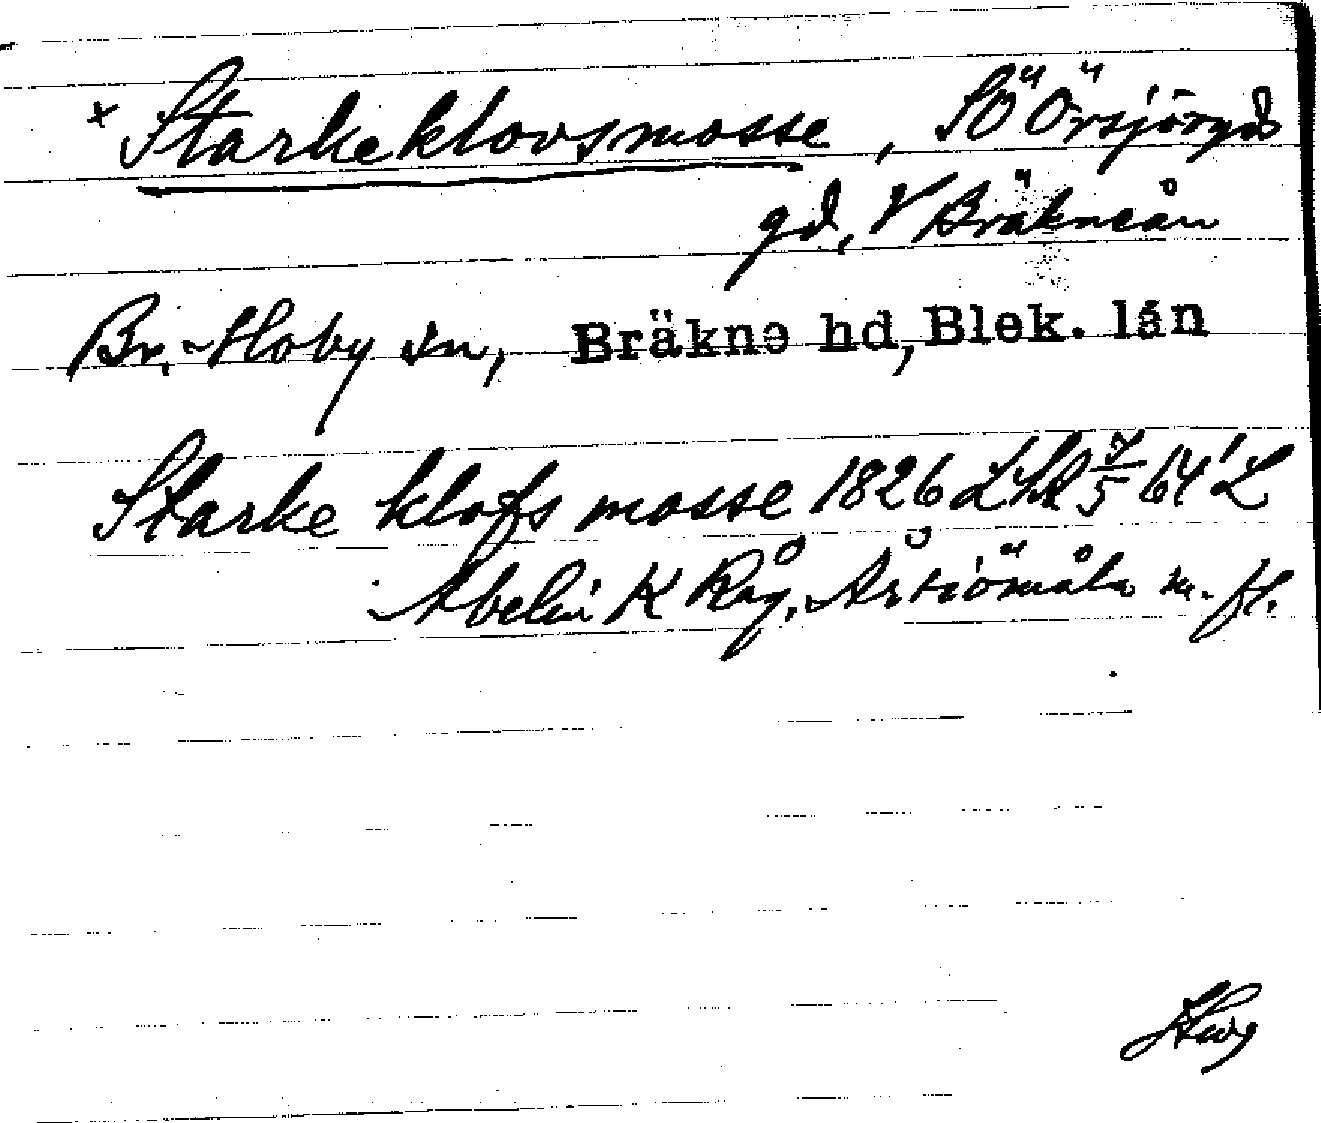 × Starkeklovsmosse, SÖ Örsjöryds
gd, V Bräkneån
Br.-Hoby sn, Bräkne hd, Blek. län
Starke klofs mosse 1826 LSA 7/5 64' L
Abelin K Råg, Årsiömåla m. fl.